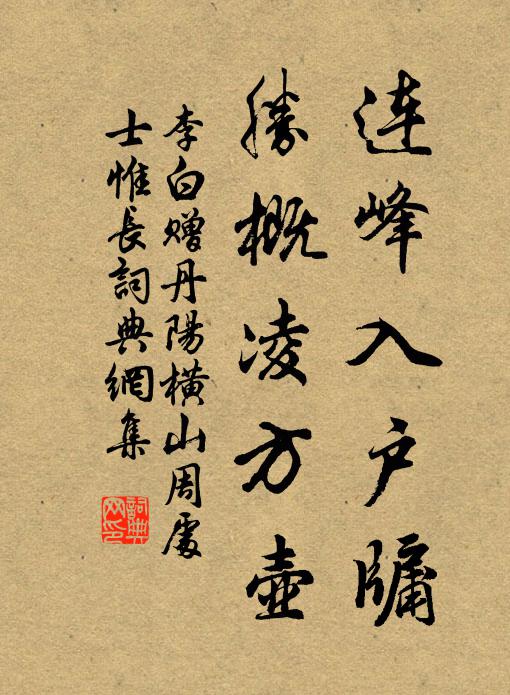 連峰入户牖
勝概凌方壺
李白贈丹陽横山周處
士惟長詞典網集
詞典
网印